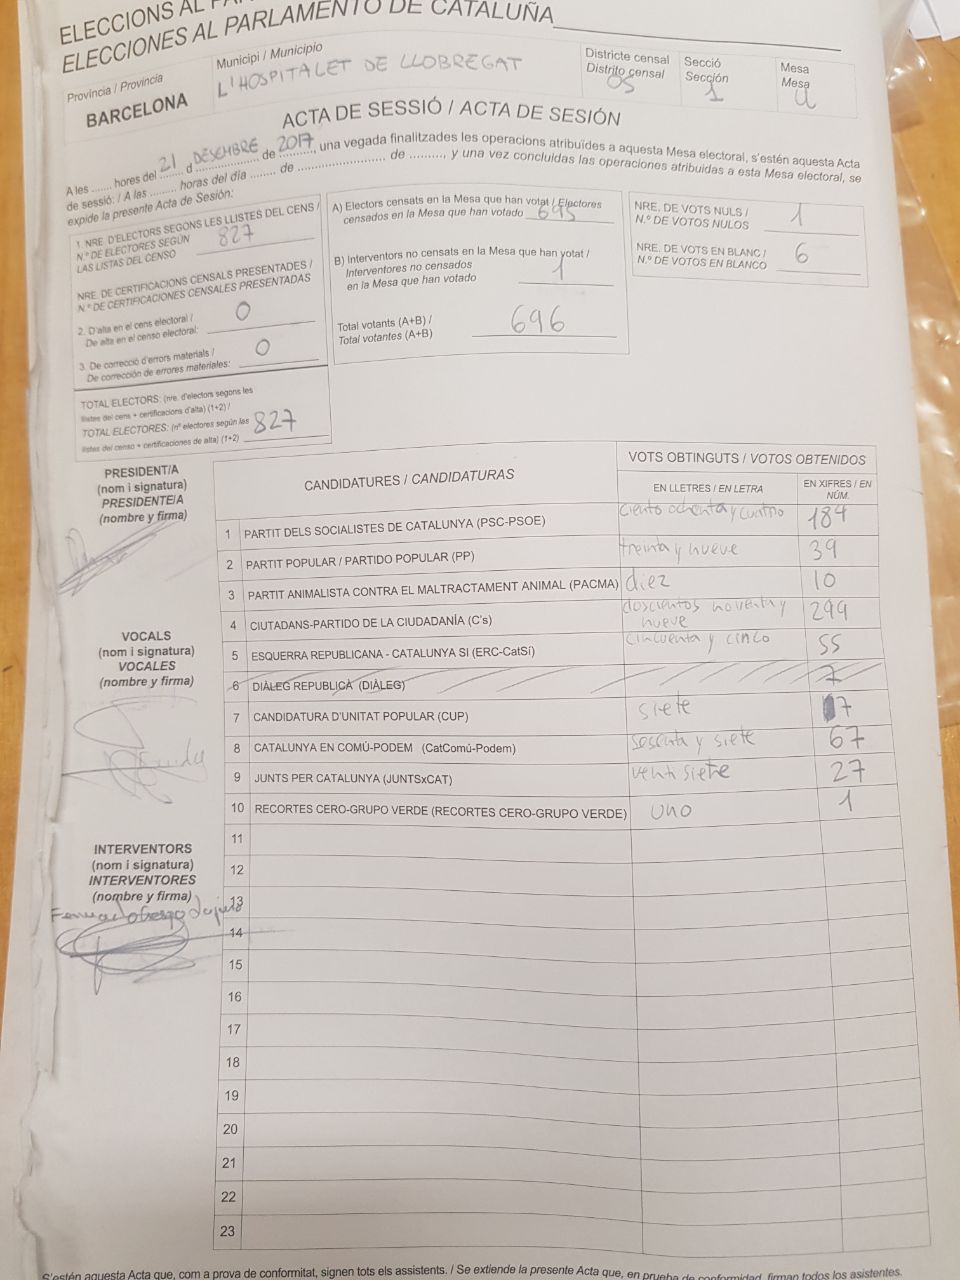 ELECCIONS AL
ELECCIONES AL PARLAMENTO DE CATALUÑA
Província / Provincia
BARCELONA
Municipi / Municipio
L'HOSPITALET DE LLOBREGAT
Districte censal
Distrito censal
05
Secció
Sección
1
Mesa
Mesa
U
ACTA DE SESSIÓ / ACTA DE SESIÓN
A les ....... hores del 21 d DESEMBRE de 2017, una vegada finalitzades les operacions atribuïdes a aquesta Mesa electoral, s'estén aquesta Acta
de sessió: / A las ......... horas del día ........ de ........................... de .........., y una vez concluidas las operaciones atribuidas a esta Mesa electoral, se
expide la presente Acta de Sesión:
1. NRE. D'ELECTORS SEGONS LES LLISTES DEL CENS /
N.º DE ELECTORES SEGÚN
LAS LISTAS DEL CENSO 827
NRE. DE CERTIFICACIONS CENSALS PRESENTADES /
N.º DE CERTIFICACIONES CENSALES PRESENTADAS
2. D'alta en el cens electoral /
De alta en el censo electoral: 0
3. De correcció d'errors materials /
De corrección de errores materiales: 0
TOTAL ELECTORS: (nre. d'electors segons les
llistes del cens + certificacions d'alta) (1+2) /
TOTAL ELECTORES: (nº electores según las
listes del censo + certificaciones de alta) (1+2) 827
A) Electors censats en la Mesa que han votat / Electores
censados en la Mesa que han votado 695
B) Interventors no censats en la Mesa que han votat /
Interventores no censados
en la Mesa que han votado 1
Total votants (A+B) /
Total votantes (A+B) 696
NRE. DE VOTS NULS /
N.º DE VOTOS NULOS 1
NRE. DE VOTS EN BLANC /
N.º DE VOTOS EN BLANCO 6
PRESIDENT/A
(nom i signatura)
PRESIDENTE/A
(nombre y firma)
VOCALS
(nom i signatura)
VOCALES
(nombre y firma)
INTERVENTORS
(nom i signatura)
INTERVENTORES
(nombre y firma)
CANDIDATURES / CANDIDATURAS
VOTS OBTINGUTS / VOTOS OBTENIDOS
EN LLETRES / EN LETRA
EN XIFRES / EN NÚM.
1 PARTIT DELS SOCIALISTES DE CATALUNYA (PSC-PSOE) ciento ochenta y cuatro 184
2 PARTIT POPULAR / PARTIDO POPULAR (PP) treinta y nueve 39
3 PARTIT ANIMALISTA CONTRA EL MALTRACTAMENT ANIMAL (PACMA) diez 10
4 CIUTADANS-PARTIDO DE LA CIUDADANÍA (C's) doscientos noventa y nueve 299
5 ESQUERRA REPUBLICANA - CATALUNYA SI (ERC-CatSí) cincuenta y cinco 55
6 DIÀLEG REPUBLICÀ (DIÀLEG) 7
7 CANDIDATURA D'UNITAT POPULAR (CUP) siete 7
8 CATALUNYA EN COMÚ-PODEM (CatComú-Podem) sesenta y siete 67
9 JUNTS PER CATALUNYA (JUNTSxCAT) venti siete 27
10 RECORTES CERO-GRUPO VERDE (RECORTES CERO-GRUPO VERDE) uno 1
11
12
13
14
15
16
17
18
19
20
21
22
23
S'estén aquesta Acta que, com a prova de conformitat, signen tots els assistents. / Se extiende la presente Acta que, en prueba de conformidad, firman todos los asistentes.